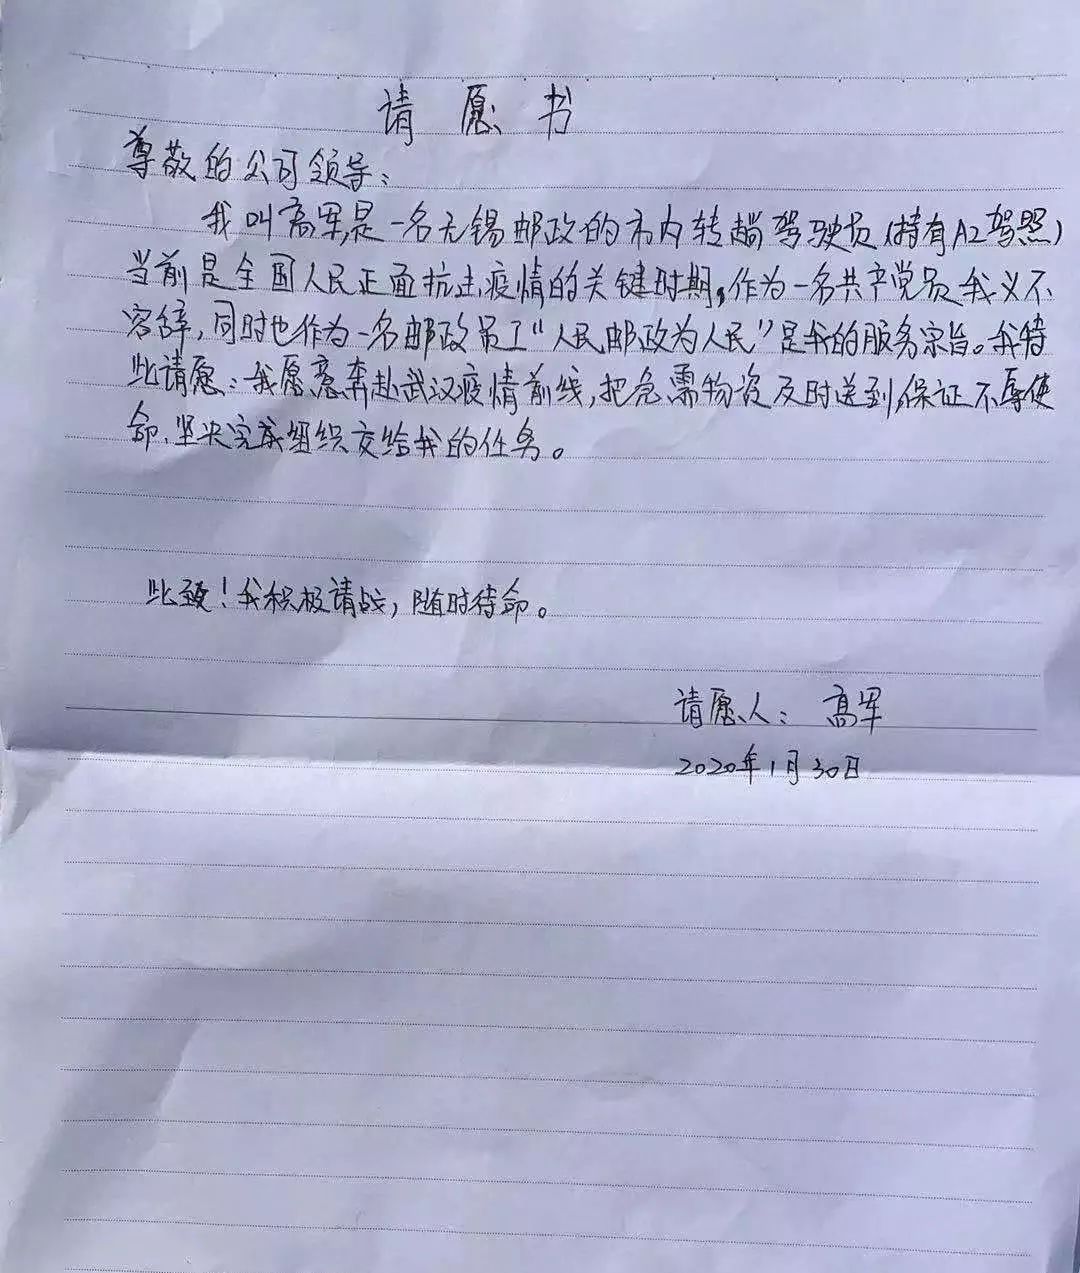 请愿书
尊敬的公司领导：
我叫高军,是一名无锡邮政的市内转趟驾驶员(持有A2驾照)
当前是全国人民正面抗击疫情的关键时期,作为一名共产党员我义不
容辞,同时也作为一名邮政员工“人民邮政为人民”是我的服务宗旨。我特
此请愿：我愿意奔赴武汉疫情前线,把急需物资及时送到保证不辱使
命.坚决完成组织交给我的任务。
此致！我积极请战,随时待命。
请愿人：高军
2020年1月30日